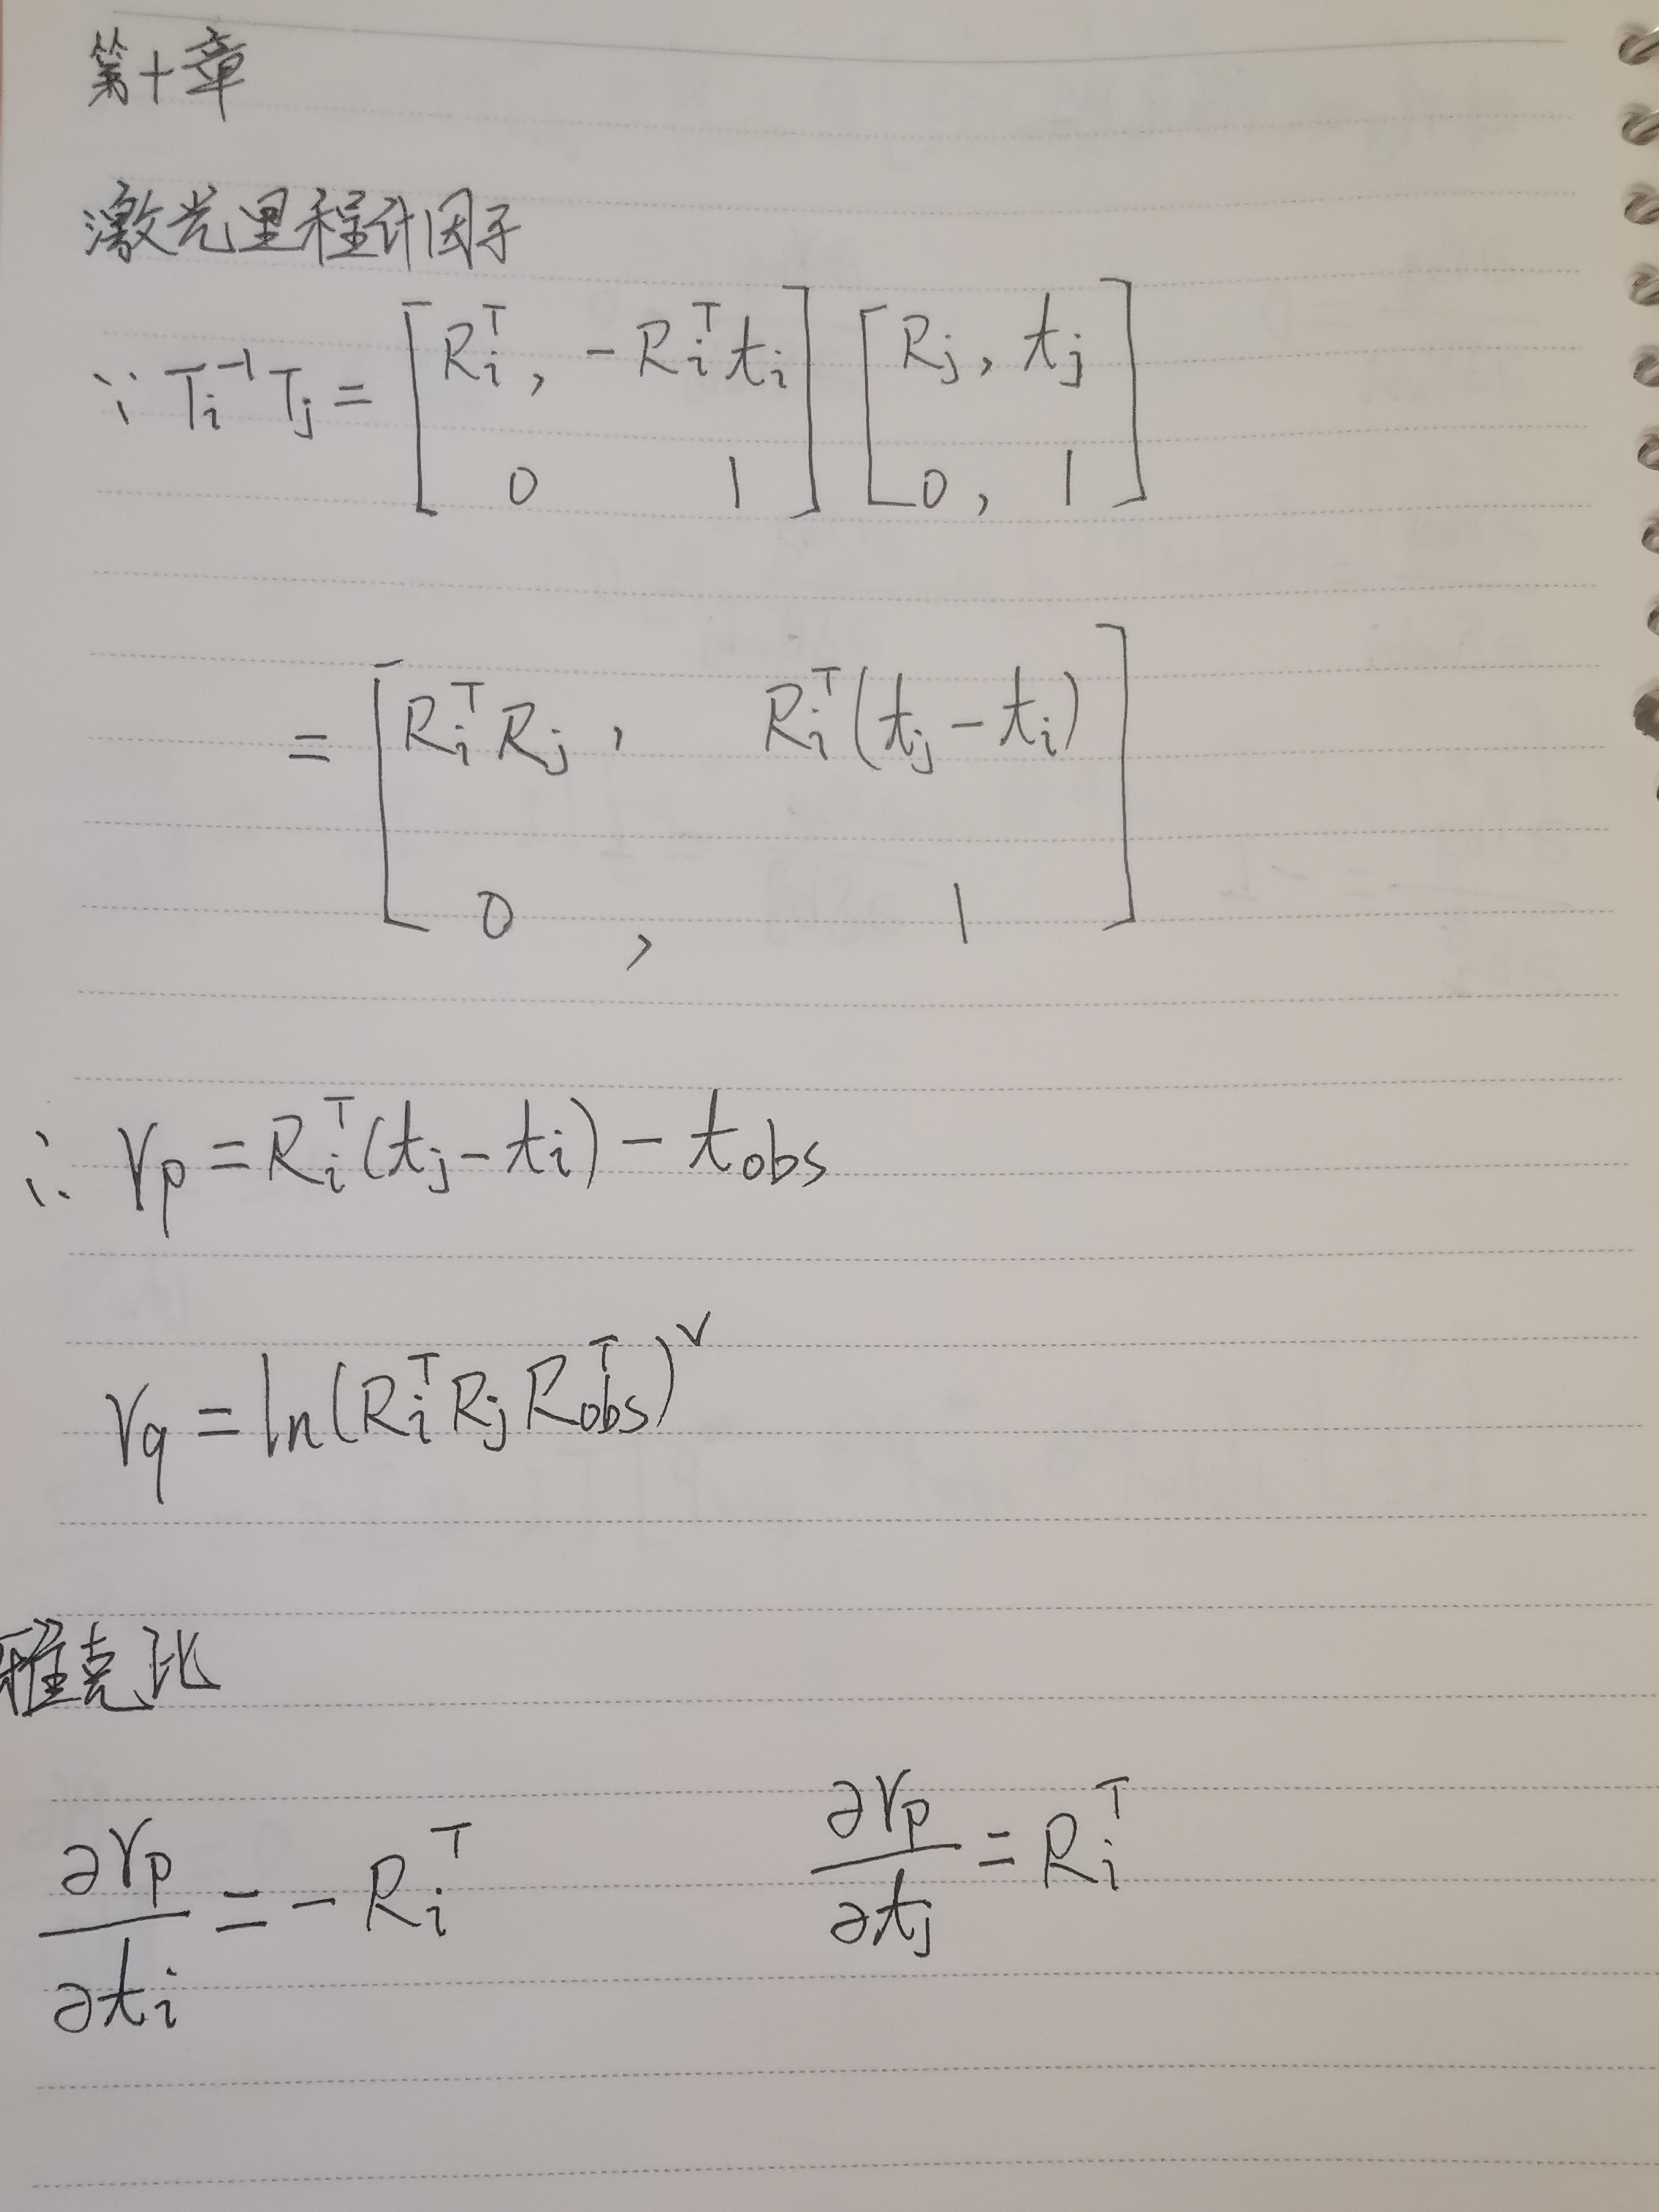 第十章
激光里程计因子
∵ T_i^{-1} T_j = [ R_i^T , -R_i^T t_i ; 0 1 ] [ R_j , t_j ; 0 , 1 ]
= [ R_i^T R_j , R_i^T (t_j - t_i) ; 0 , 1 ]
∴ r_p = R_i^T (t_j - t_i) - t_obs
r_q = ln(R_i^T R_j R_obs^T)^∨
雅克比
∂r_p/∂t_i = -R_i^T ∂r_p/∂t_j = R_i^T